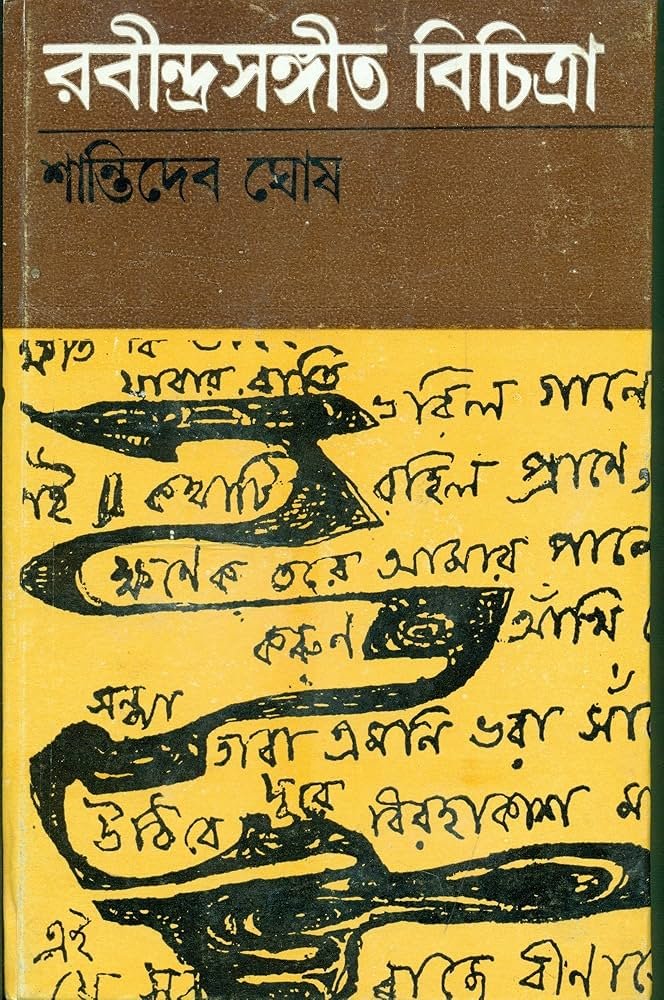 রবীন্দ্রসঙ্গীত বিচিত্রা
শান্তিদেব ঘোষ
ক্ষতি কি
যাবার রাতি ভরিল গানে
কথাটি রহিল প্রাণে
ক্ষণেক তরে আমার পানে
করুণ আঁখি
সন্ধ্যা তারা এমনি ভরা সাঁঝে
উঠিবে দূরে বিরহাকাশ মা
এই
যে সুর বাজে বীণাতে